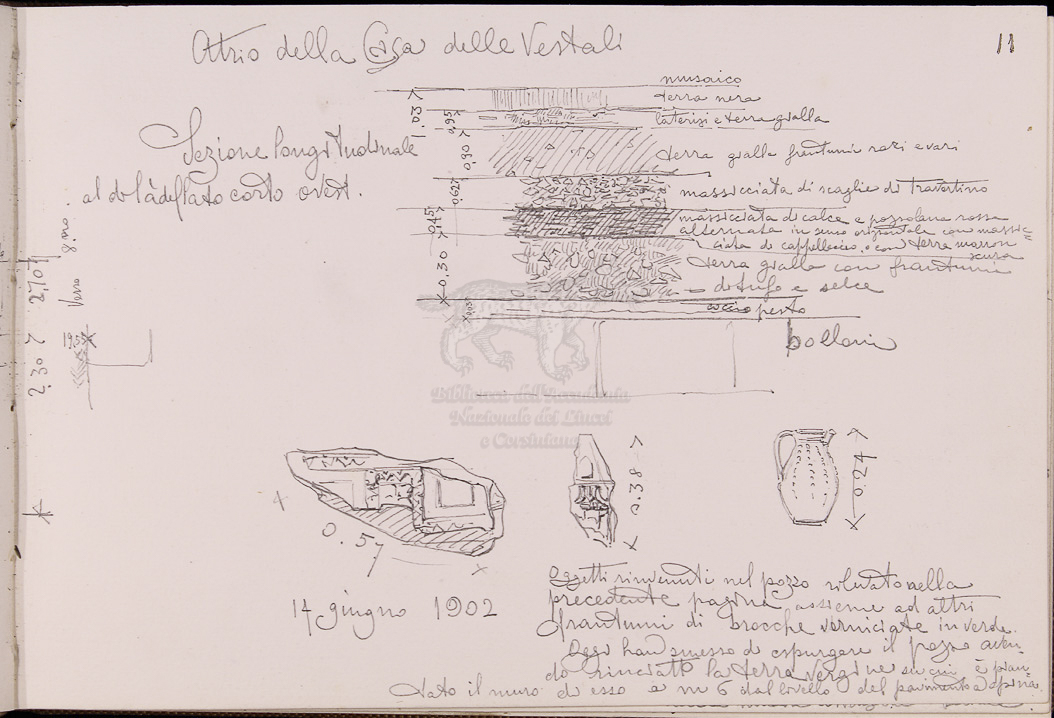 11
Atrio della Casa delle Vestali
Sezione longitudinale
al di là del lato corto ovest.
musaico
terra nera
laterizi e terra gialla
terra gialla frantumi rari e vari
massicciata di scaglie di travertino
massicciata di calce e pozzolana rossa
alternata in senso orizontale con massic=
ciata di cappellaccio o con terra marron
scura
terra gialla con frantumi
di tufo e selce
coccio pesto
bollani
1.03
0,95
0,80
0,627
0,45
0.30
0,05
2,70
2.30
Verso 8.mo.
19
Biblioteca dell'Accademia
Nazionale dei Lincei
e Corsiniana
0.57
0.38
0.24
14 giugno 1902
Oggetti rinvenuti nel pozzo rilevato nella
precedente pagina assieme ad altri
frantumi di brocche verniciate in verde.
Oggi han smesso di espurgare il pozzo aven
do rinvenuto la terra vergine su cui è pian
tato il muro di esso a m 6 dal livello del pavimento